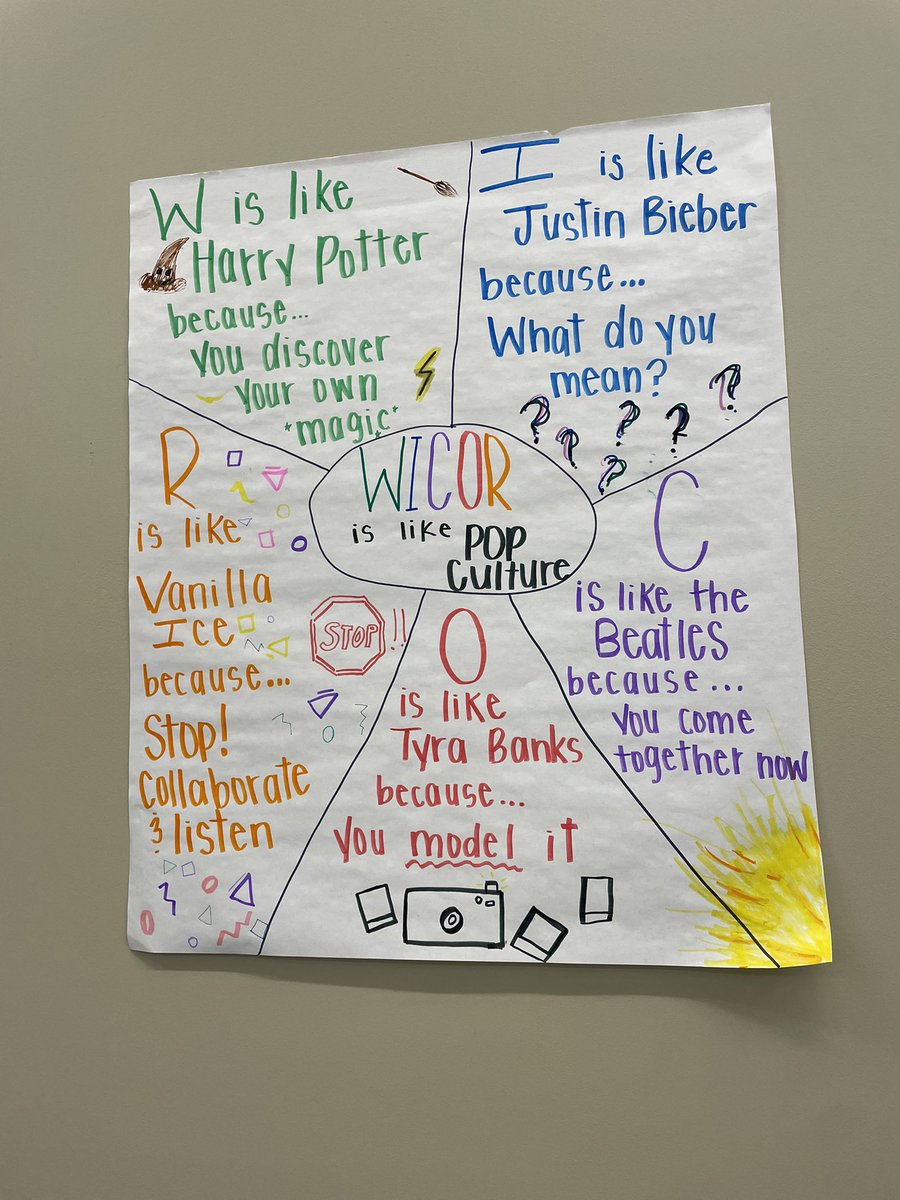 WICOR
is like POP
Culture
W is like
Harry Potter
because...
you discover
your own
*magic*
I is like
Justin Bieber
because...
What do you
mean?
? ? ? ? ? ?
C
is like the
Beatles
because...
you come
together now
O
is like
Tyra Banks
because...
you model it
R
is like
Vanilla
Ice
because...
Stop!
Collaborate
& listen
STOP!!